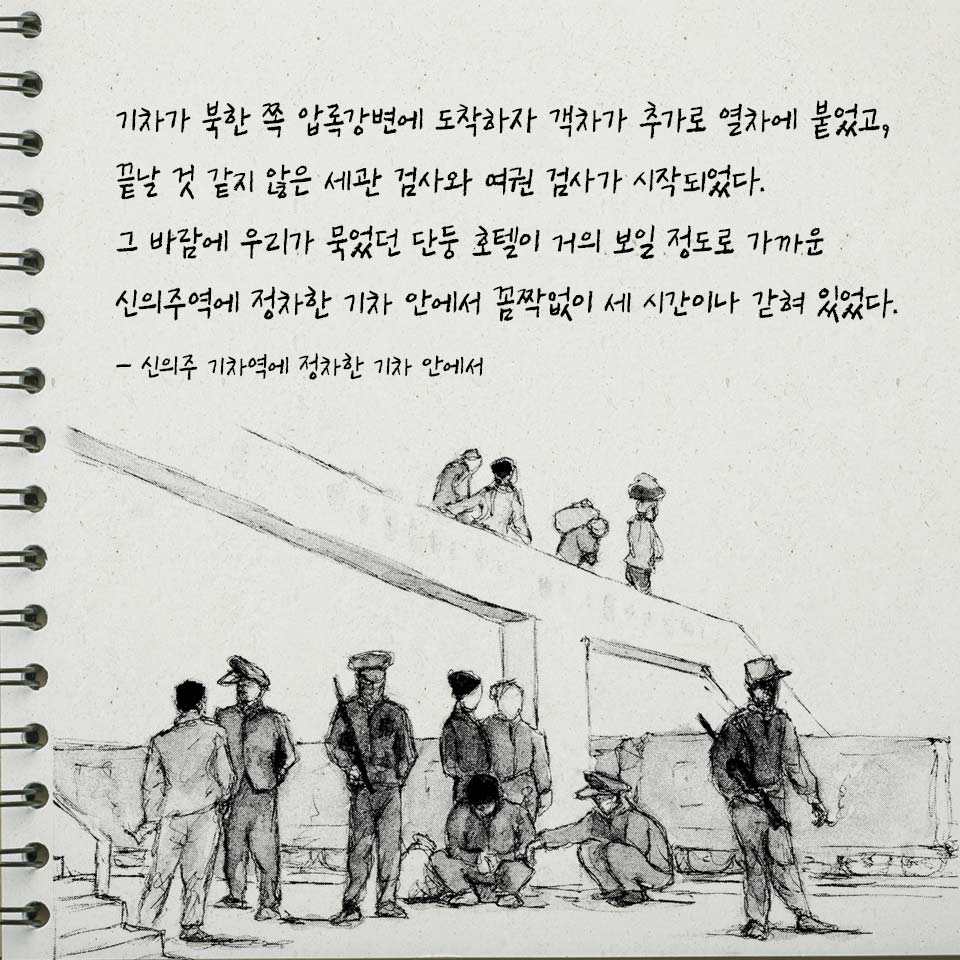 기차가 북한 쪽 압록강변에 도착하자 객차가 추가로 열차에 붙었고,
끝날 것 같지 않은 세관 검사와 여권 검사가 시작되었다.
그 바람에 우리가 묵었던 단둥 호텔이 거의 보일 정도로 가까운
신의주역에 정차한 기차 안에서 꼼짝없이 세 시간이나 갇혀 있었다.
- 신의주 기차역에 정차한 기차 안에서